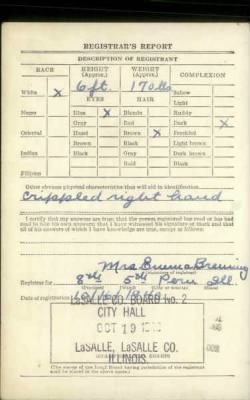 REGISTRAR'S REPORT
DESCRIPTION OF REGISTRANT
RACE HEIGHT (Approx.) WEIGHT (Approx.) COMPLEXION
White X 6 ft. 170 lbs Sallow
EYES HAIR Light
Negro Blue X Blonde Ruddy
Gray Red Dark X
Oriental Hazel Brown X Freckled
Brown Black Light brown
Indian Black Gray Dark brown
Bald Black
Filipino
Other obvious physical characteristics that will aid in identification
crippled right hand
I certify that my answers are true; that the person registered has read or has had
read to him his own answers; that I have witnessed his signature or mark and that
all of his answers of which I have knowledge are true, except as follows:
Mrs Emma
(Signature of registrar)
Registrar for 8th 5th Peru Ill.
(Precinct) (Ward) (City or county) (State)
Date of registration
LaSALLE CO. BOARD No. 2
CITY HALL
OCT 19
LaSALLE, LaSALLE CO.
ILLINOIS
(The stamp of the Local Board having jurisdiction of the registrant
shall be placed in the above space.)